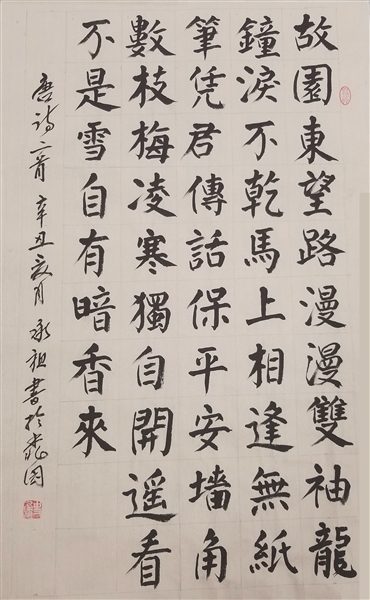 故園東望路漫漫雙袖龍
鐘淚不乾馬上相逢無紙
筆凭君傳話保平安墻角
數枝梅凌寒獨自開遥看
不是雪自有暗香來
唐诗二首 辛丑 月 承祖書於